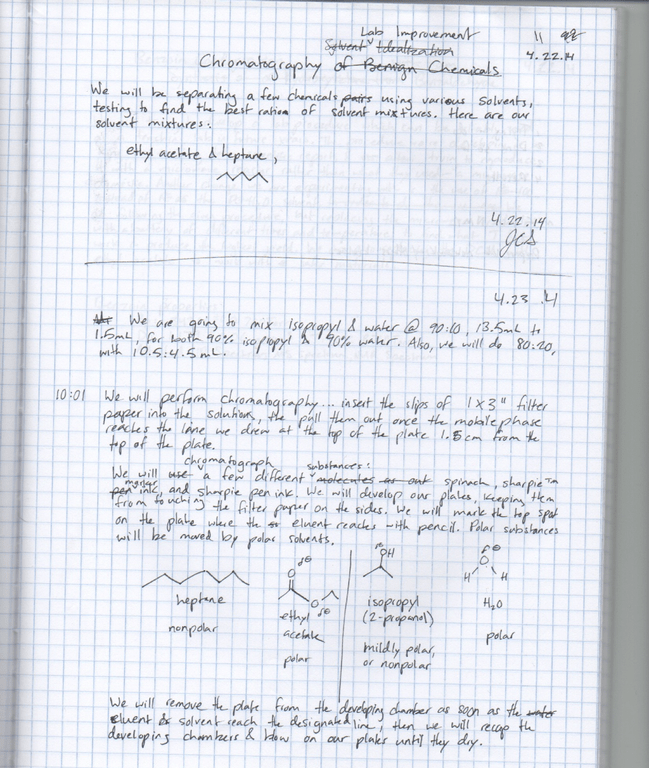 Lab Improvement 11
Solvent Idealization 4.22.14
Chromatography of Benign Chemicals
We will be separating a few chemicals pairs using various solvents,
testing to find the best ration of solvent mixtures. Here are our
solvent mixtures:
ethyl acetate & heptane,
4.22.14
JCS
4.23 .4
We are going to mix isopropyl & water @ 90:10, 13.5mL to
1.5mL, for both 90% isopropyl & 90% water. Also, we will do 80:20,
with 10.5:4.5mL.
10:01 We will perform chromatography... insert the slips of 1x3" filter
paper into the solution, the pull them out once the mobile phase
reaches the lane we drew at the top of the plate 1.5cm from the
top of the plate.
chromatograph substances:
We will use a few different molecules as out spinach, sharpie™
pen ink, and sharpie pen ink. We will develop our plates, keeping them
from touching the filter paper on the sides. We will mark the top spot
on the plate where the eluent reaches with pencil. Polar substances
will be moved by polar solvents.
δ⊖ OH δ⊖
O O
O δ⊖ H H
heptane ethyl acetate isopropyl (2-propanol) H₂O
nonpolar polar mildly polar, or nonpolar polar
We will remove the plate from the developing chamber as soon as the water
eluent & solvent reach the designated line, then we will recap the
developing chambers & blow on our plates until they dry.